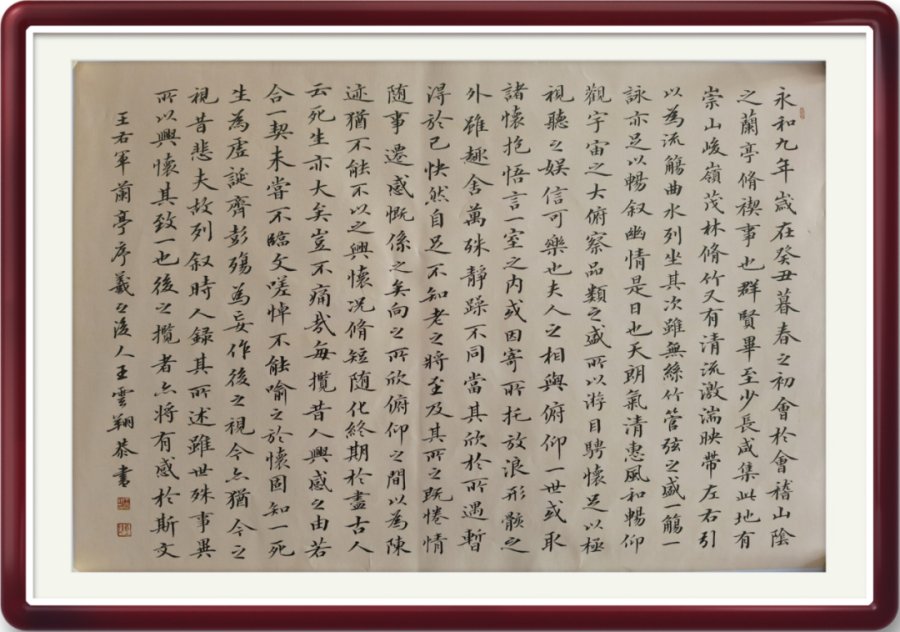 永和九年歲在癸丑暮春之初會於會稽山陰
之蘭亭脩禊事也群賢畢至少長咸集此地有
崇山峻嶺茂林脩竹又有清流激湍映帶左右引
以為流觴曲水列坐其次雖無絲竹管弦之盛一觴一
詠亦足以暢叙幽情是日也天朗氣清惠風和暢仰
觀宇宙之大俯察品類之盛所以遊目騁懷足以極
視聽之娛信可樂也夫人之相與俯仰一世或取
諸懷抱悟言一室之內或因寄所托放浪形骸之
外雖趣舍萬殊靜躁不同當其欣於所遇暫
得於己快然自足不知老之將至及其所之既惓情
隨事遷感慨係之矣向之所欣俯仰之間以為陳
迹猶不能不以之興懷況脩短隨化終期於盡古人
云死生亦大矣豈不痛哉每攬昔人興感之由若
合一契未嘗不臨文嗟悼不能喻之於懷固知一死
生為虛誕齊彭殤為妄作後之視今亦猶今之
視昔悲夫故列叙時人録其所述雖世殊事異
所以興懷其致一也後之攬者亦將有感於斯文
王右軍蘭亭序羲之後人王雲翔恭書